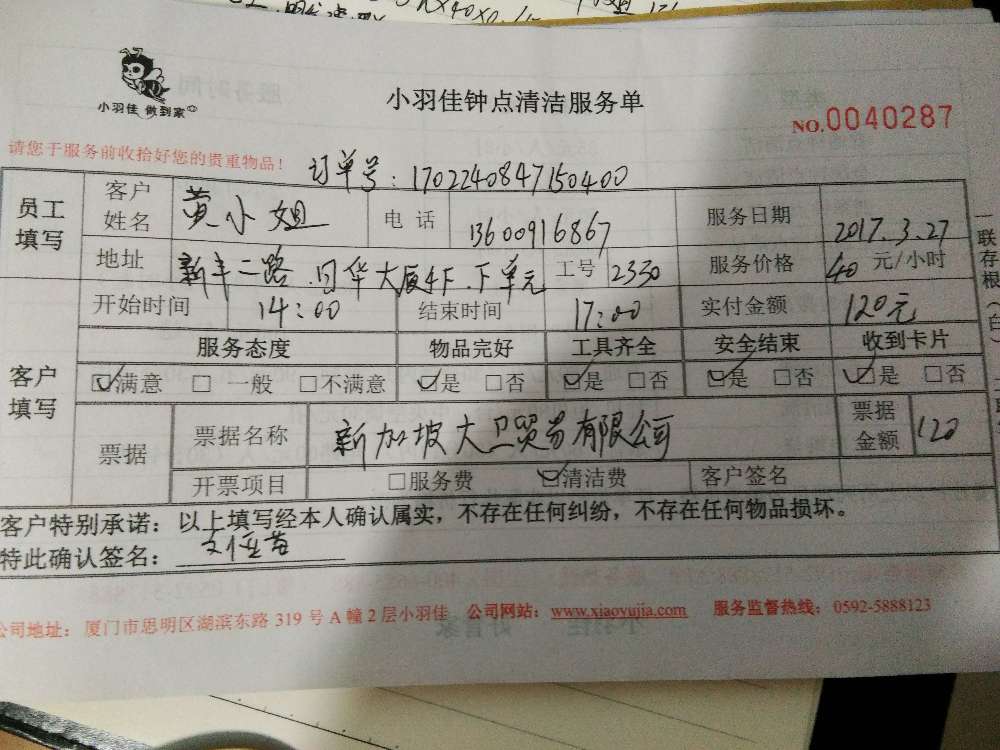 小羽佳 做到家
小羽佳钟点清洁服务单
NO.0040287
请您于服务前收拾好您的贵重物品！
订单号：1702240847150400
员工填写 客户姓名 黄小姐 电话 13600916867 服务日期 2017.3.27
地址 新丰二路.日华大厦4F.下单元 工号 2330 服务价格 40 元/小时
开始时间 14:00 结束时间 17:00 实付金额 120元
客户填写 服务态度 物品完好 工具齐全 安全结束 收到卡片
☑满意 □一般 □不满意 ☑是 □否 ☑是 □否 ☑是 □否 ☑是 □否
票据 票据名称 新加坡大卫贸易有限公司 票据金额 120
开票项目 □服务费 ☑清洁费 客户签名
客户特别承诺：以上填写经本人确认属实，不存在任何纠纷，不存在任何物品损坏。
特此确认签名：
公司地址：厦门市思明区湖滨东路 319 号 A 幢 2 层小羽佳 公司网站：www.xiaoyujia.com 服务监督热线：0592-5888123
一联存根（白）